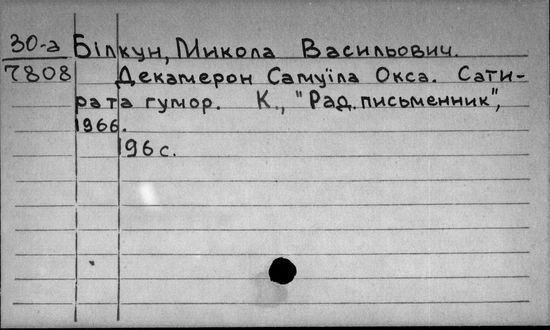 30-а Білкун, Микола Васильович.
7808 Декамерон Самуїла Окса. Сати-
ра та гумор. К., "Рад. письменник",
1966.
196 с.